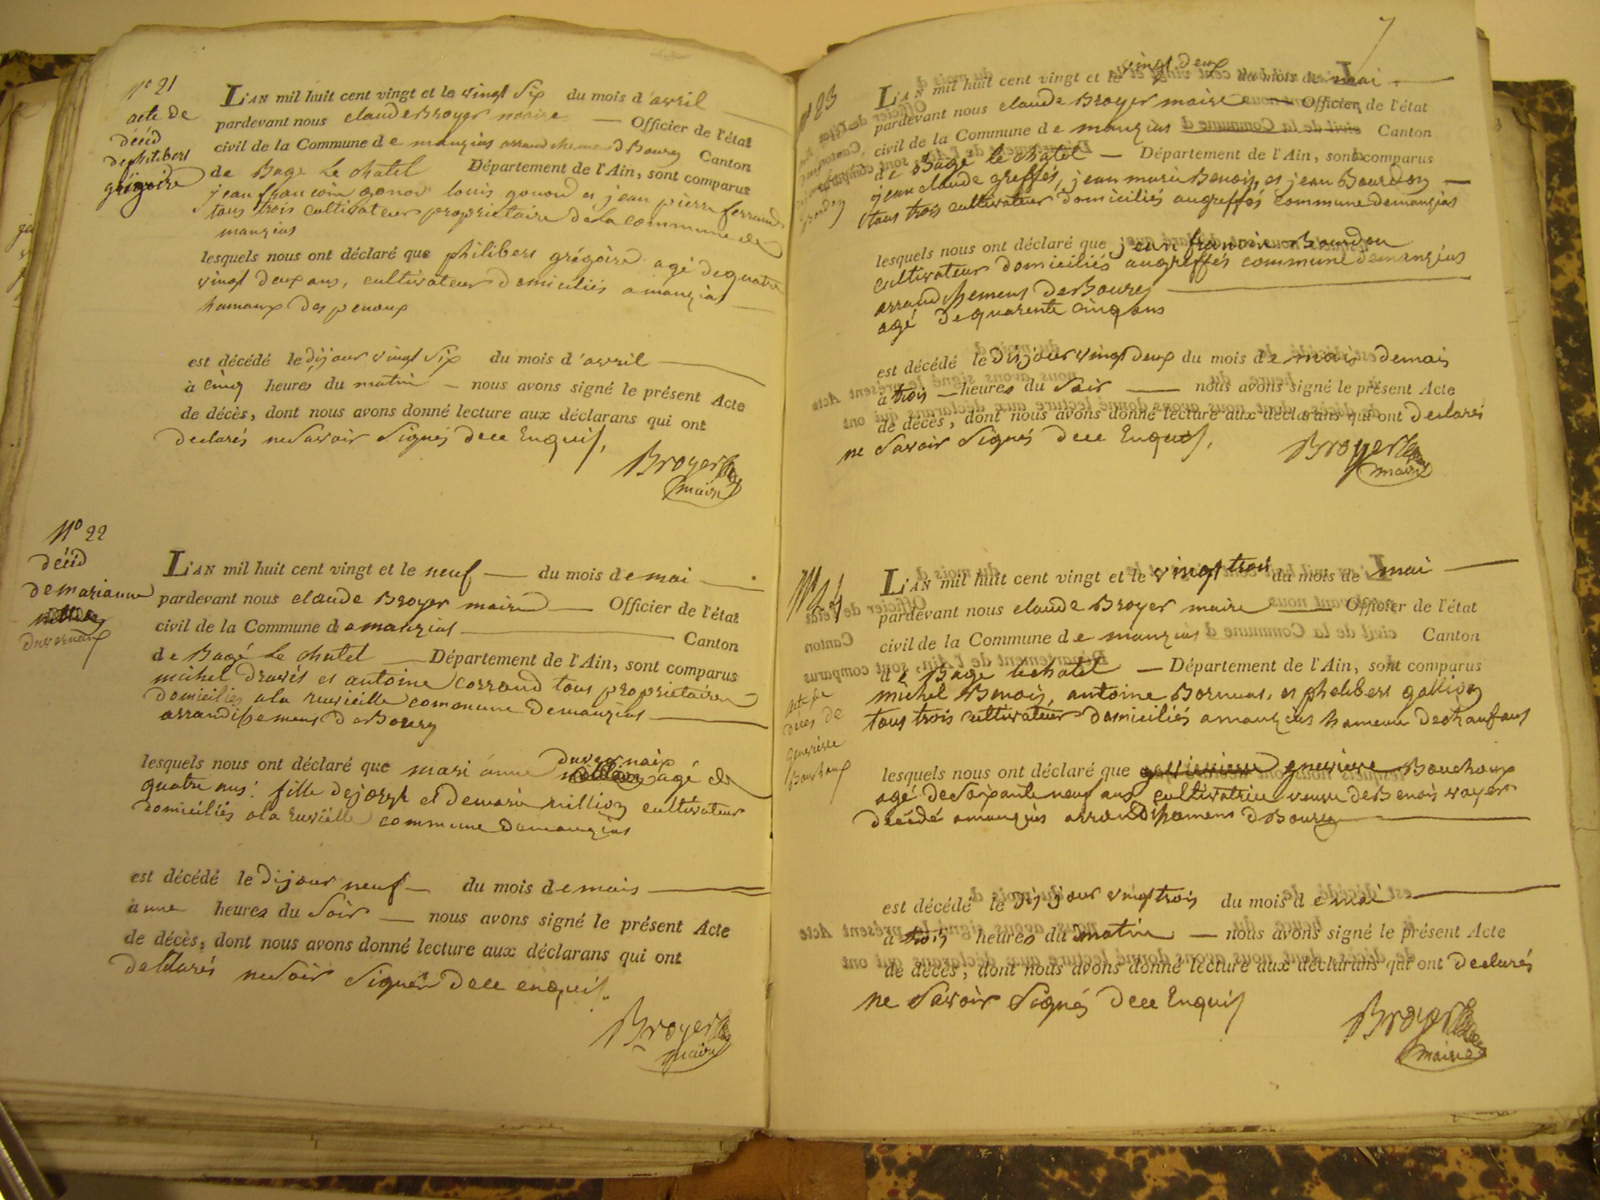 N° 21
acte de
décéd
de philibers
grégoire
L'AN mil huit cent vingt et le vingt Six du mois d'avril
pardevant nous claude Broyer maire — Officier de l'état
civil de la Commune de manzias arrondichement d Boureg Canton
de Bage Le chatel Département de l'Ain, sont comparus
jean francoin gonod louis gonod es jean pierre ferrand
tous trois cultivateur proprietaire de la commune de
manzias
lesquels nous ont déclaré que philibers grégoire agé de quatre
vingt deux ans, cultivateur domiciliés a manzias
hamaux des penoux
est décédé le dijour vingt Six du mois d'avril
à cinq heures du matin — nous avons signé le présent Acte
de décès, dont nous avons donné lecture aux déclarans qui ont
declarés ne Savoir Signés dece Enquis,
Broyer
maire
N° 22
décéd
de marianne
duvernaix
L'AN mil huit cent vingt et le neuf — du mois de mai
pardevant nous claude Broyer maire — Officier de l'état
civil de la Commune de manzias Canton
de Bagé Le chatel — Département de l'Ain, sont comparus
michel Dravés et antoine corrand tous proprietaire
domiciliés a la ruvieille commune de manzias
arrandissemens de Boureg
lesquels nous ont déclaré que mari anne duvernaix agé de
quatre ans: fille de joseph et de marie million cultivateur
domiciliés a la ruvielle commune de manzias
est décédé le dijour neuf — du mois de mais
à une heures du Soir — nous avons signé le présent Acte
de décès, dont nous avons donné lecture aux déclarans qui ont
declarés ne Savoir Signés dece enquis.
Broyer
maire
7
n° 23
vingt deux
L'AN mil huit cent vingt et le du mois de mai
pardevant nous claude Broyer maire Officier de l'état
civil de la Commune de manzias Canton
de Bage le chatel — Département de l'Ain, sont comparus
jean claude greffés, jean marie Benois, es jean Bourdon
tous trois cultivateur domiciliés au greffés commune de manzias
lesquels nous ont déclaré que jean francoin Bourdon
cultivateur domiciliés au greffés commune de manzias
arrandichemens de Boureg
agé de quarente cinq ans
est décédé le dijour vingt deux du mois de mais de mais
à trois — heures du Soir — nous avons signé le présent Acte
de décès, dont nous avons donné lecture aux déclarans qui ont declarés
ne Savoir Signés dece Enquis,
Broyer
maire
N° 24
acte de
décés de
genevieve
Bouchoux
L'AN mil huit cent vingt et le vingt trois du mois de mai
pardevant nous claude Broyer maire — Officier de l'état
civil de la Commune de manzias Canton
de Bage le chatel — Département de l'Ain, sont comparus
michel Benois, antoine Bornuas, es philibers gallion
tous trois cultivateur domiciliés a manzias hameau de chanfans
lesquels nous ont déclaré que genevieve Bouchoux
agé de Soixante neuf ans cultivatrice veuve de Benois voyer
décédé a manzias arrondichemens d Boureg
est décédé le dijour vingt trois du mois de mai
à trois heures du matin — nous avons signé le présent Acte
de décès, dont nous avons donné lecture aux déclarans qui ont declarés
ne Savoir Signés dece Enquis
Broyer
maire